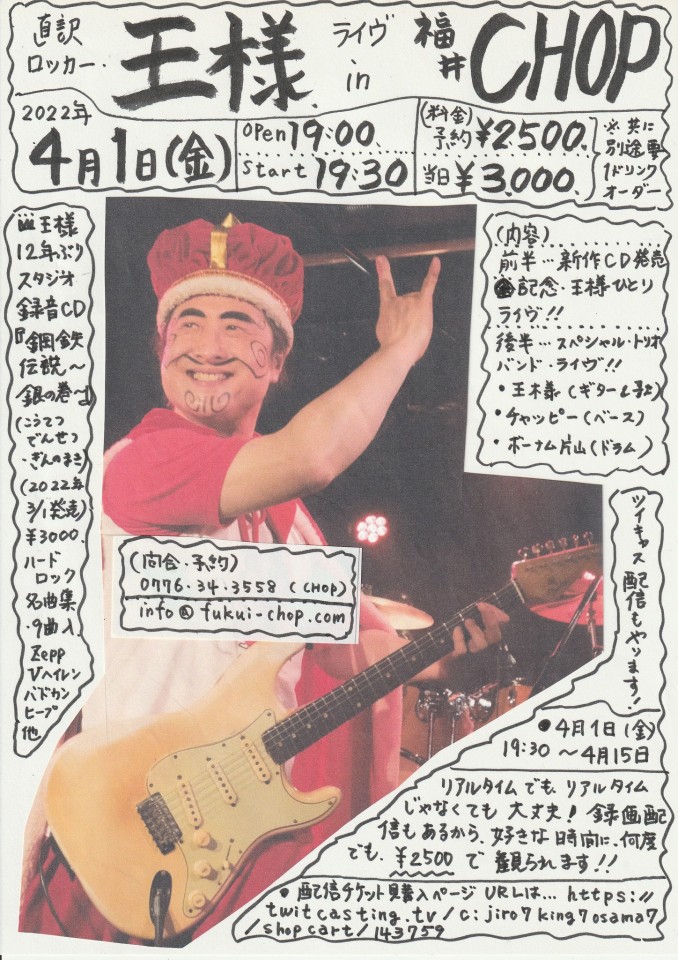 直訳
ロッカー・
王様
ライヴ
in
福井
CHOP
2022年
4月1日(金)
open 19:00
Start 19:30
(料金)
予約 ¥2500.
当日 ¥3,000.
※共に
別途要
1ドリンク
オーダー
王様
12年ぶり
スタジオ
録音CD
『鋼鉄
伝説〜
銀の巻〜』
(こうてつ
でんせつ
・ぎんのまき)
(2022年
3/1発売)
¥3000.
ハード
ロック
名曲集
・9曲入
Zepp
Vヘイレン
パドカン
ヒープ
他
(内容)
前半…新作CD発売
記念・王様ひとり
ライヴ!!
後半…スペシャル・トリオ
バンド・ライヴ!!
・王様(ギター&歌)
・チャッピー(ベース)
・ボーナム片山(ドラム)
(問合・予約)
0776・34・3558 (CHOP)
info@fukui-chop.com
ツイキャス配信もやります!
●4月1日(金)
19:30 〜4月15日
リアルタイムでも、リアルタイム
じゃなくても大丈夫! 録画配
信もあるから、好きな時間に、何度
でも、¥2500で観られます!!
●配信チケット購入ページURLは… https://
twitcasting.tv/c:jiro7king7osama7
/shopcart/143759